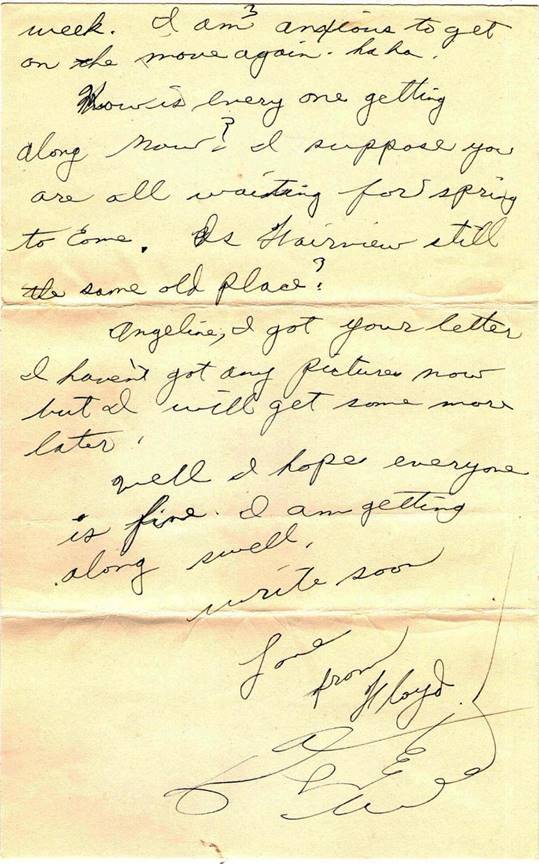 week. I am? anxious to get
on the move again. ha ha.
How is every one getting
along now? I suppose you
are all waiting for spring
to come. Is Fairview still
the same old place?
Angeline, I got your letter
I haven't got any pictures now
but I will get some more
later.
well I hope everyone
is fine. I am getting
along swell.
write soon
Love
from
Floyd